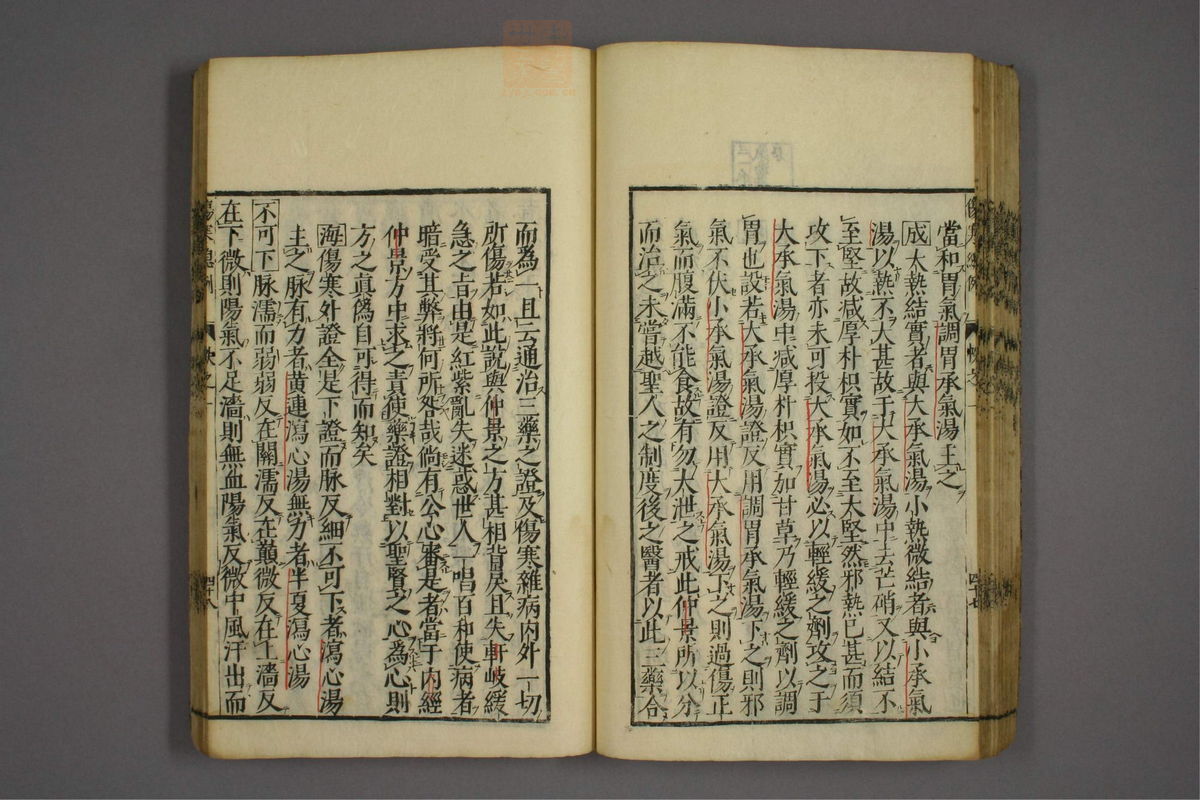 當和胃氣調胃承氣湯主之
成大熱結實者與大承氣湯小熱微結者與小承氣
湯以熱不大甚故于大承氣湯中去芒硝又以結不
至堅故减厚朴枳實如不至大堅然邪熱已甚而須
攻下者亦未可投大承氣湯必以輕緩之劑攻之于
大承氣湯中减厚朴枳實加甘草乃輕緩之劑以調
胃也設若大承氣湯證反用調胃承氣湯下之則邪
氣不伏小承氣湯證反用大承氣湯下之則過傷正
氣而腹滿不能食故有勿大泄之戒此仲景所以分
而治之未嘗越聖人之制度後之醫者以此三藥合
四十七
而為一且云通治三藥之證及傷寒雜病內外一切
所傷若如此說與仲景之方甚相背戾且失軒岐緩
急之旨由是紅紫亂失迷惑世人一唱百和使病者
暗受其弊將何所咎哉倘有公心審是者當于內經
仲景方中求之責使藥證相對以聖賢之心為心則
方之眞偽自可得而知矣
海傷寒外證全是下證而脉反細不可下者瀉心湯
主之脉有力者黃連瀉心湯無力者半夏瀉心湯
不可下脉濡而弱弱反在關濡反在巔微反在上濇反
在下微則陽氣不足濇則無血陽氣反微中風汗出而
四十八